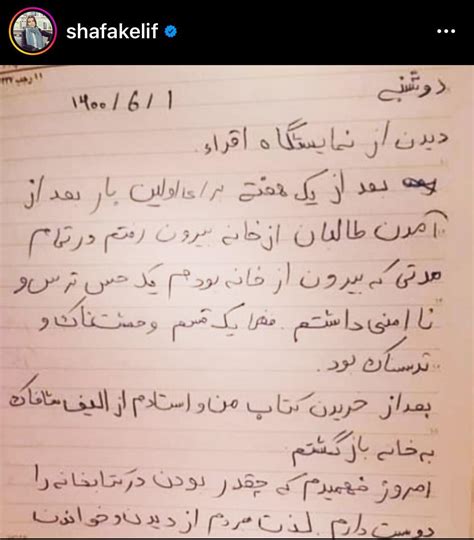 shafakelif
دوشنبه
۱۴۰۰/6/1
دیدن از نمایشگاه اقراء.
بعد از یک هفته برای اولین بار بعد از
آمدن طالبان از خانه بیرون رفتم در تمام
مدتی که بیرون از خانه بودم یک حس ترس و
نا امنی داشتم. فضا یک قسم وحشتناک و
ترسناک بود.
بعد از خریدن کتاب من و استادم از الیف شافاک
به خانه بازگشتم
امروز فهمیدم که چقدر بودن در کتابخانه را
دوست دارم. لذت مردم از دیدن و خواندن